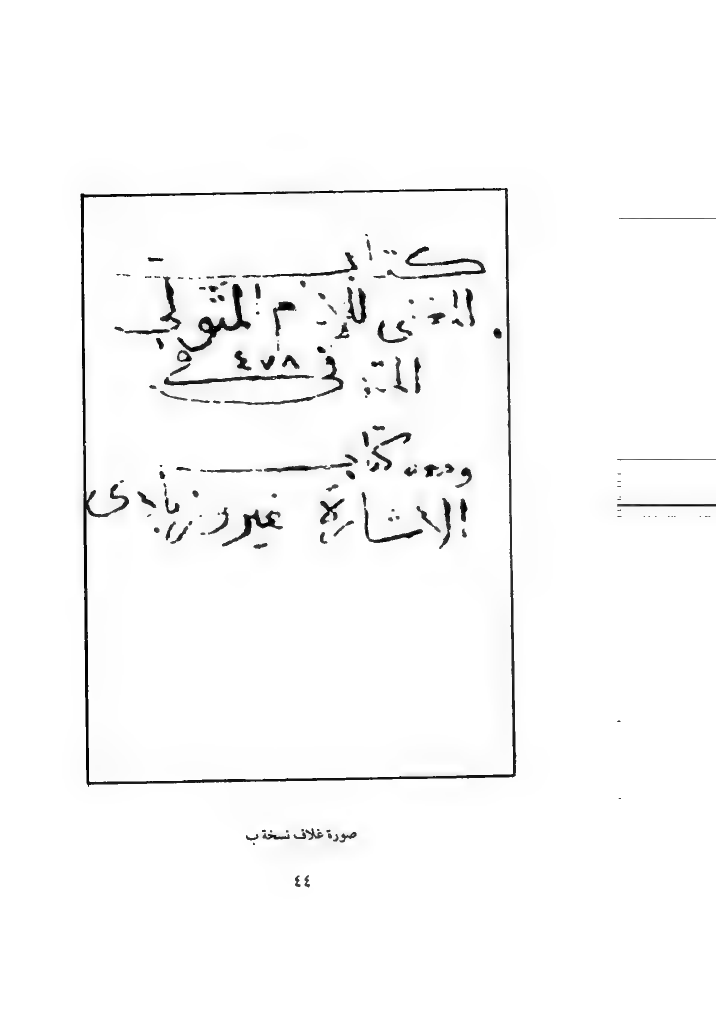 كتاب
المغنى للإمام المتولي
المتوفى ٤٧٨
ودونه كتاب
الاشارة فيروزبادى
صورة غلاف نسخة ب
٤٤